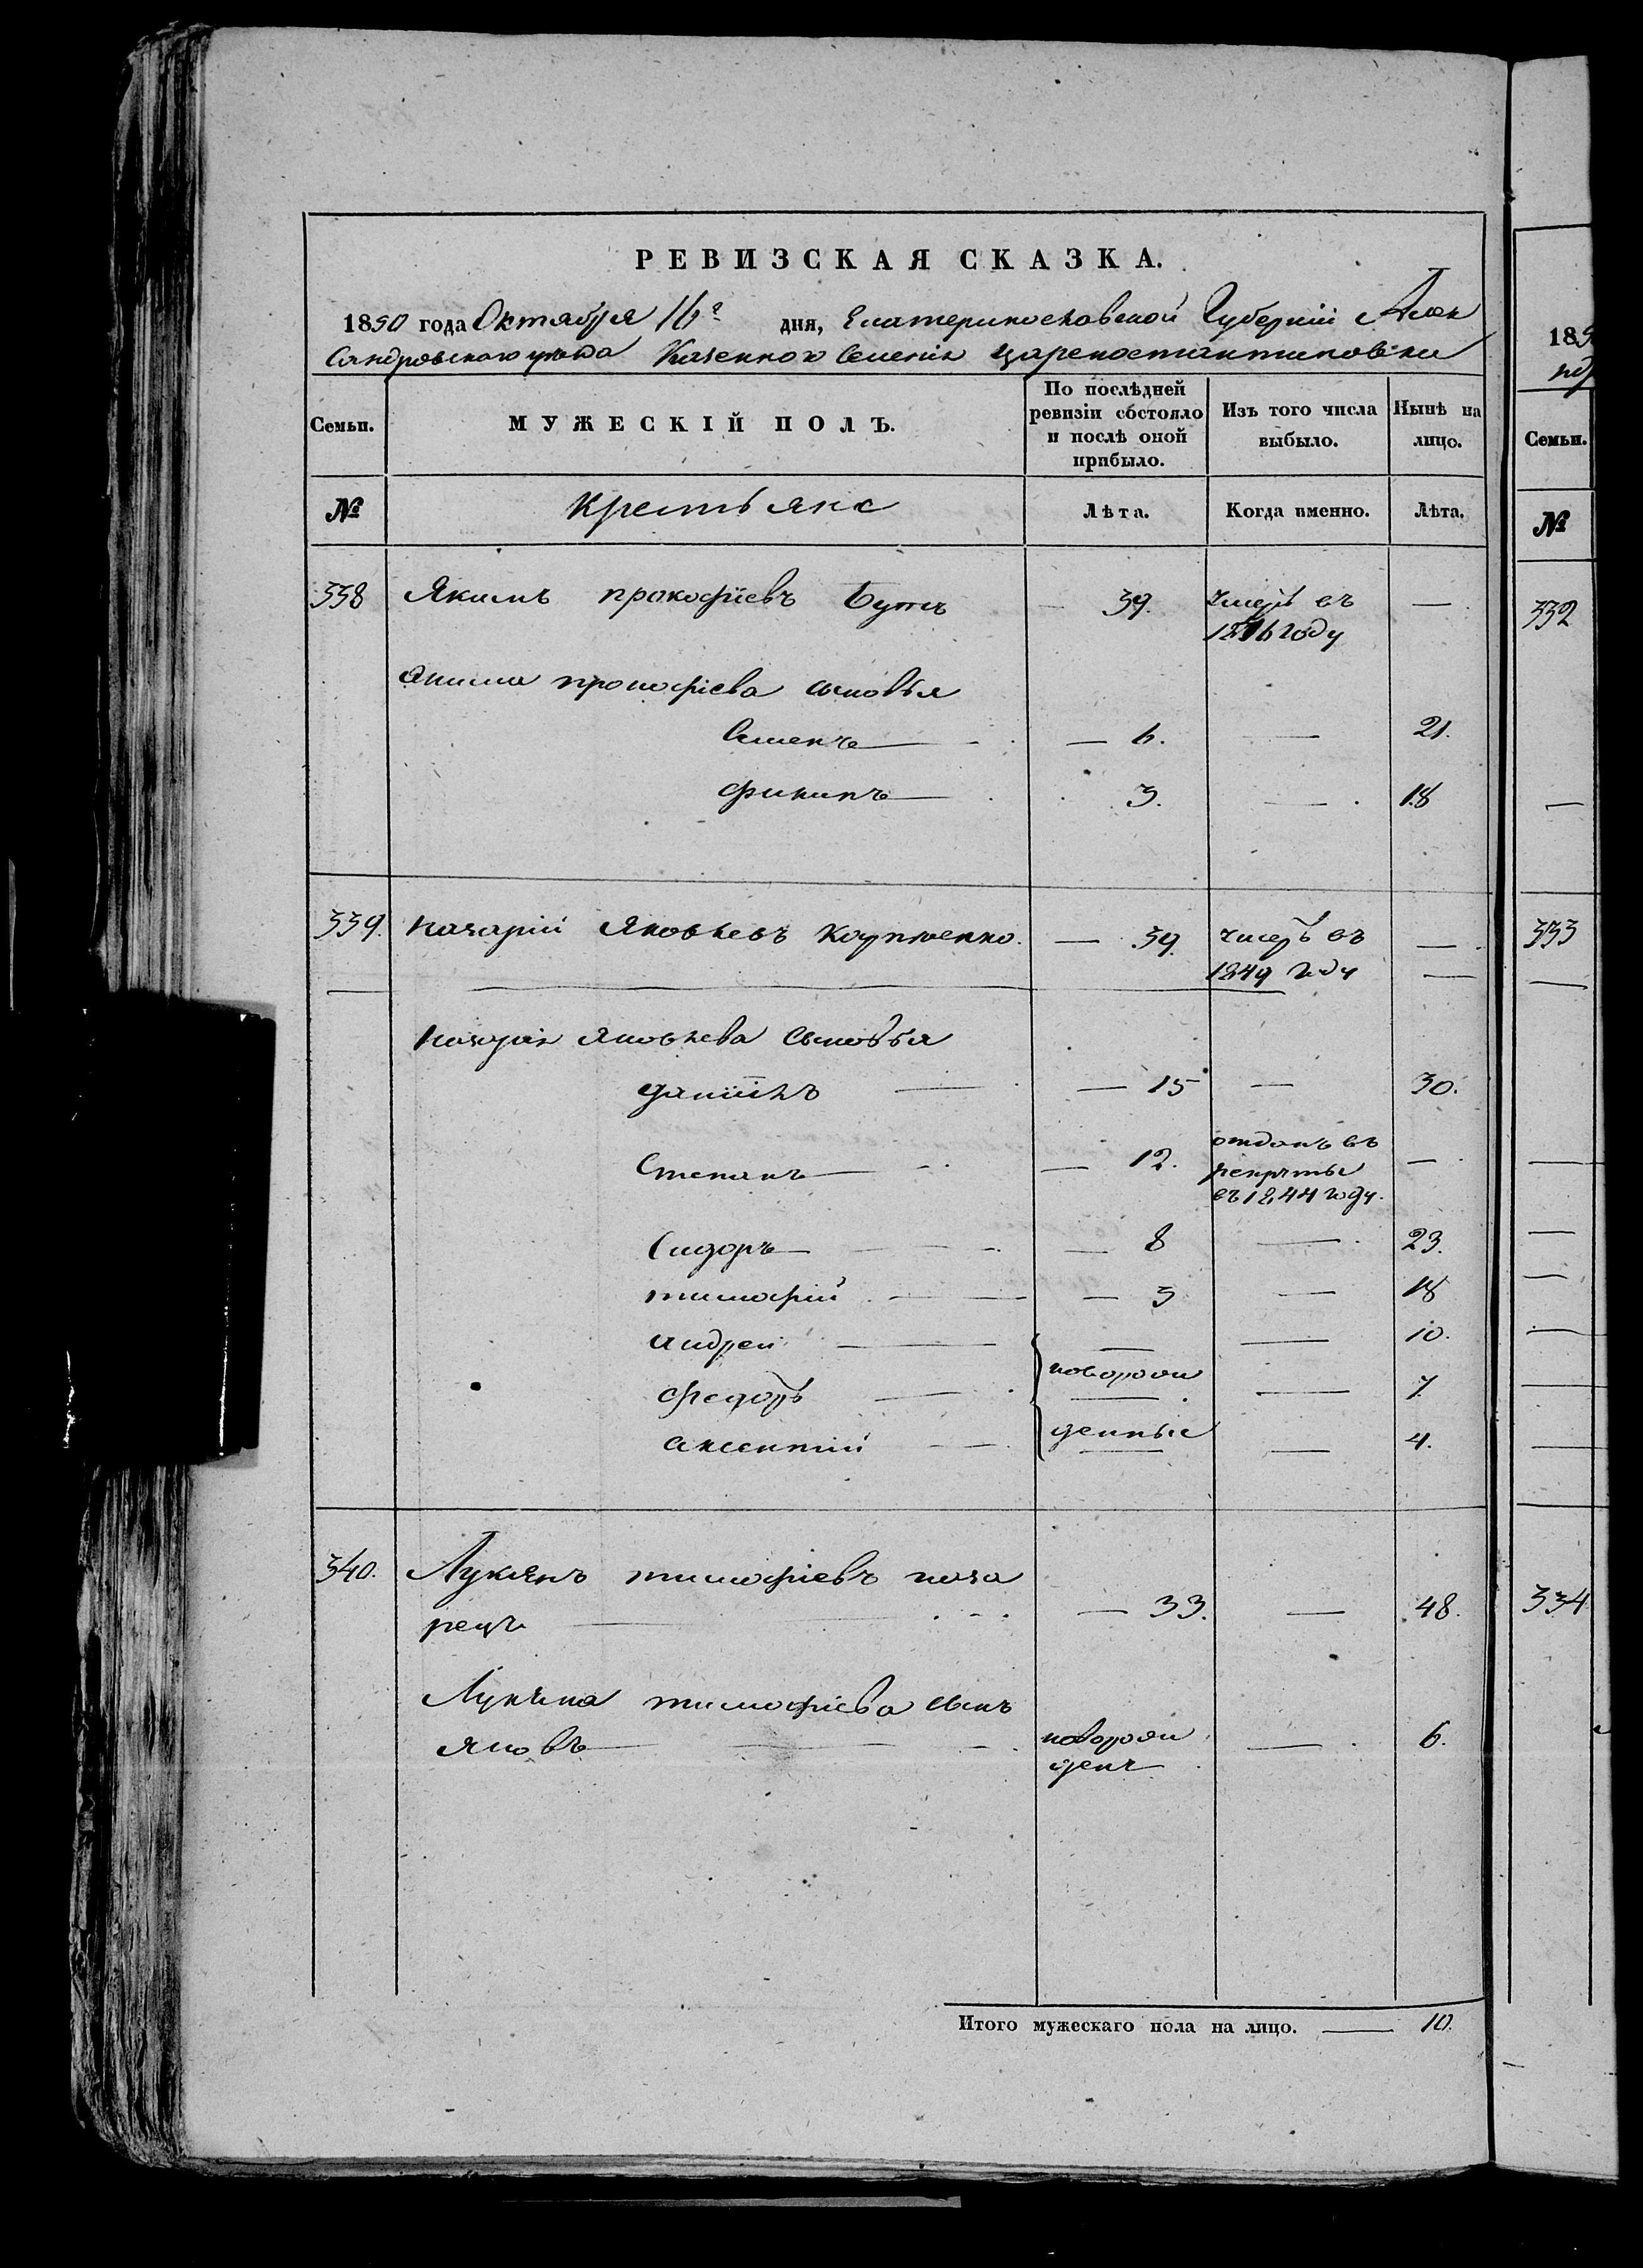 РЕВИЗСКАЯ СКАЗКА.
1850 года Октября 16го дня, Екатеринославской Губерніи Алек
сандровскаго уезда Казенного Селенія Цареконстантиновки
Семьи.
МУЖЕСКІЙ ПОЛЪ.
По послѣдней
ревизіи состояло
и послѣ оной
прибыло.
Изъ того числа
выбыло.
Нынѣ на
лицо.
№ Крестьяне Лѣта. Когда именно. Лѣта.
338 Якимъ прокофіевъ Бутъ — 39. умеръ въ —
году
Якима прокофіева сыновья
Семенъ — 6. — 21.
Филипъ 3. — 18
339. Назарій Яковлевъ — 39. умеръ въ —
1849 году —
Назарія Яковлева Сыновья
Даніилъ — 15 — 30.
Степанъ — 12. отданъ въ —
рекруты
въ 1844 году.
Сидоръ — 8 — 23.
тимофій — 3 — 18
Андрей — — 10.
новорож
Федоръ — — 7.
денные
Аксентій — — 4.
340. Лукянъ тимофіевъ коза
рецъ — 33. — 48.
Лукяна тимофіева сынъ
Яковъ новорож — 6.
денъ
Итого мужескаго пола на лицо. — 10.
185
Семьи.
№
332
—
333
—
—
—
—
—
—
—
334